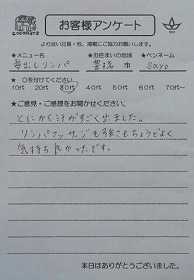 お客様アンケート
より良い品質・他、掲載にご協力お願いします。
★メニュー名 ★お住まいの地域 ★ペンネーム
毒出しリンパ 豊橋 市 sayo
★ ○を付けてください
10代 20代 30代 40代 50代 60代 70代~
★ご意見・ご感想をお聞かせください。
とにかく汗がすごく出ました。
リンパマッサージも強さもちょうどよく
気持ち良かったです。
本日はありがとうございました。